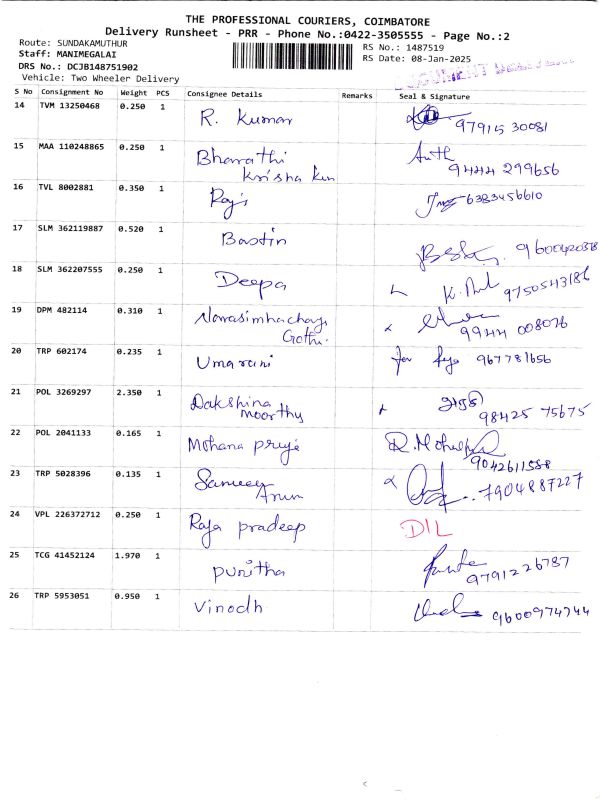 THE PROFESSIONAL COURIERS, COIMBATORE
Delivery Runsheet - PRR - Phone No.:0422-3505555 - Page No.:2
Route: SUNDAKAMUTHUR
RS No.: 1487519
Staff: MANIMEGALAI
RS Date: 08-Jan-2025
DRS No.: DCJB148751902
Vehicle: Two Wheeler Delivery
S No Consignment No Weight PCS Consignee Details Remarks Seal & Signature
14 TVM 13250468 0.250 1 R. Kumar 97915 30081
15 MAA 110248865 0.250 1 Bharathi
Krisha 9444 299656
16 TVL 8002881 0.350 1 Raji 6383456610
17 SLM 362119887 0.520 1 Bastin
18 SLM 362207555 0.250 1 Deepa 9750543186
19 DPM 482114 0.310 1
9944 008026
20 TRP 602174 0.235 1 Umarani for 967781656
21 POL 3269297 2.350 1 Dakshina
moorthy 98425 75675
22 POL 2041133 0.165 1 Mohana priye
9042611588
23 TRP 5028396 0.135 1 Sameer
Arun 7904887227
24 VPL 226372712 0.250 1 Raja pradeep DIL
25 TCG 41452124 1.970 1 punitha 9791226787
26 TRP 5953051 0.950 1 Vinodh 9600974744